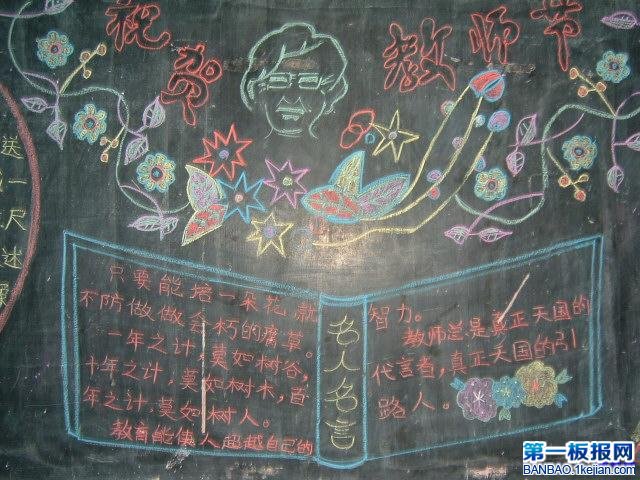 祝贺
教师节
送一尺
达
只要能培一朵花,就
不防做做会朽的腐草。
一年之计,莫如树谷,
十年之计,莫如树木,百
年之计,莫如树人。
教育能使人超越自己的
名人名言
智力。
教师兰是真正天国的
代言者,真正天国的引
路人。
第一板报网
BANBAO.1kejian.com